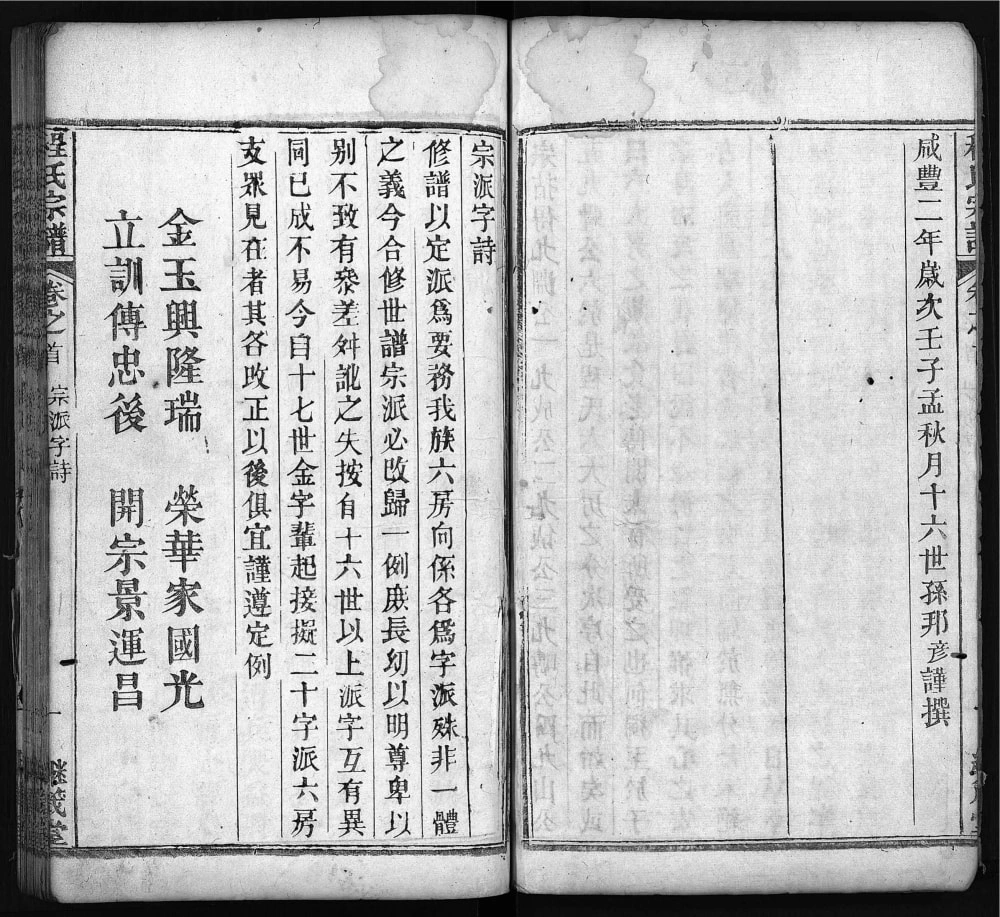 咸豐二年歲次壬子孟秋月十六世孫邦彦謹撰
宗派字詩
修譜以定派爲要務我族六房向係各爲字派殊非一體
之義今合修世譜宗派必改歸一例庶長幼以明尊卑以
别不致有叅差舛訛之失按自十六世以上派字互有異
同已成不易今自十七世金字輩起接擬二十字派六房
支衆見在者其各改正以後俱宜謹遵定例
金玉興隆瑞 榮華家國光
立訓傳忠後 開宗景運昌
程氏宗譜 卷之首 宗派字詩 一 繼義堂